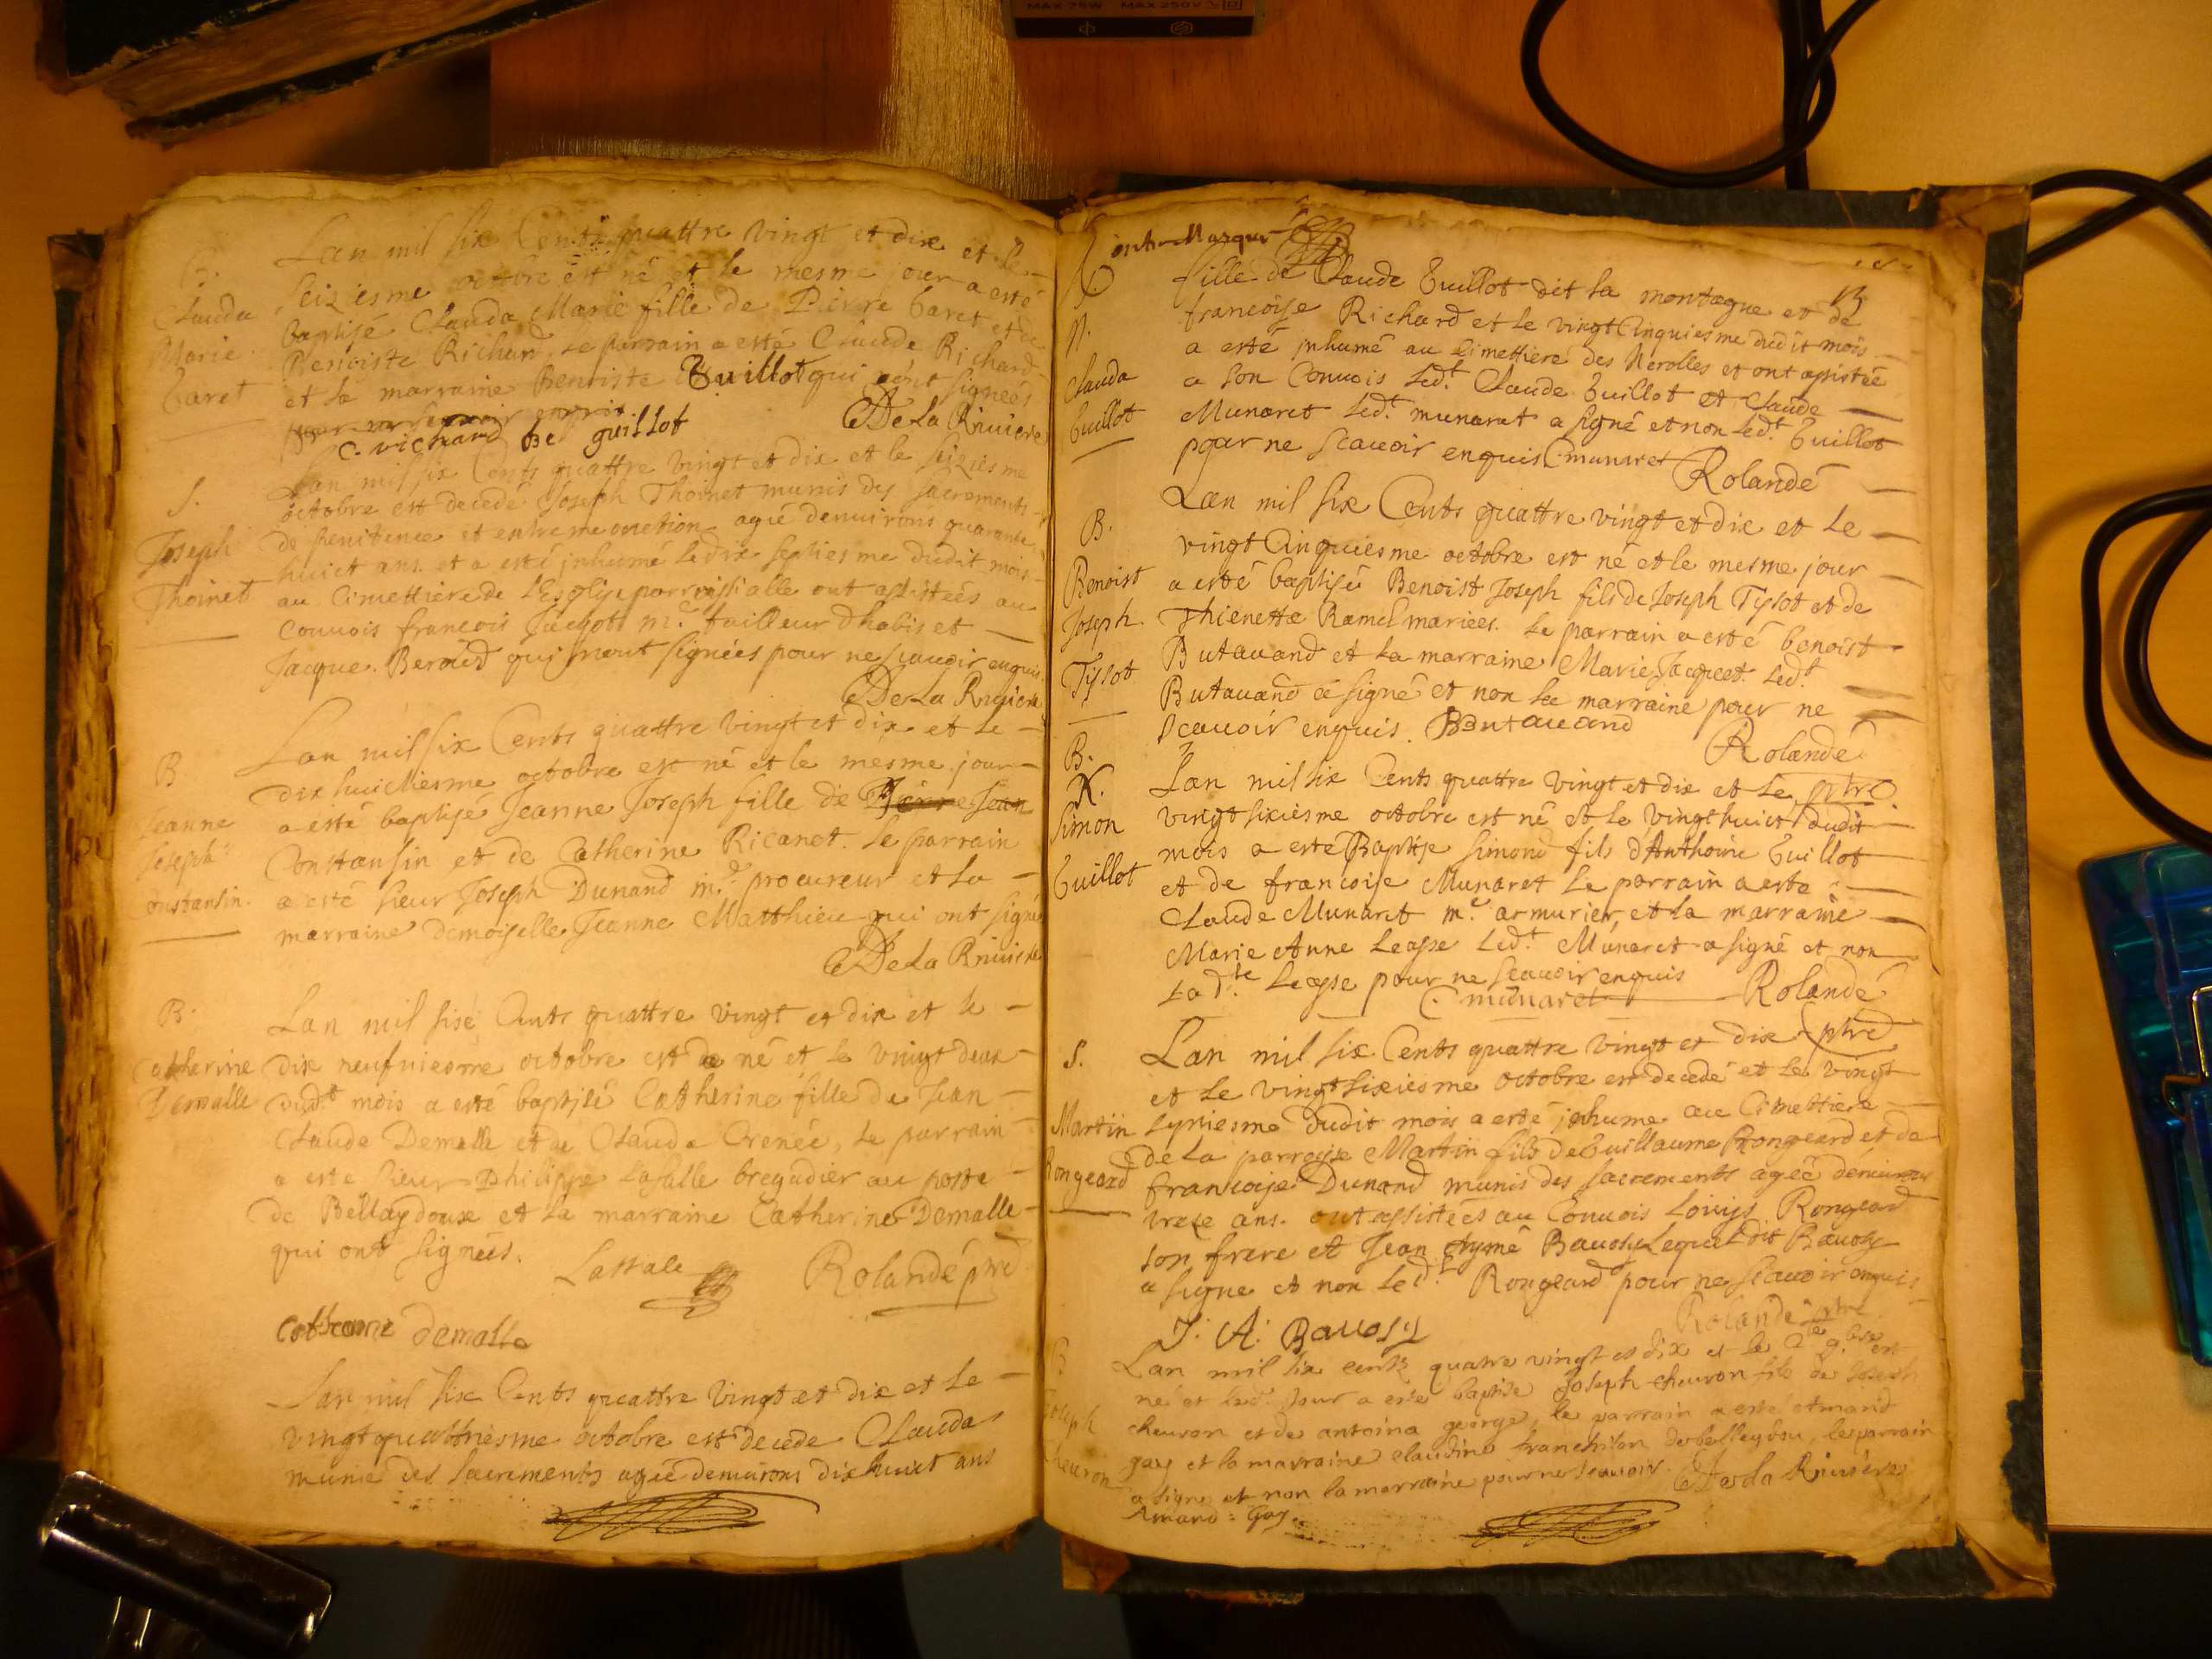 MAX 75W MAX 250V
Lan mil six Cents quattre vingt et dix et le
B.
Seiziesme octobre est né et le mesme jour a esté
Clauda
baptisé Clauda Marie fille de Pierre Caret et de
Marie
Benoiste Richard, le parrain a esté Claude Richard
Caret
et la marraine Benoiste Guillot qui ont signées
pour ne scavoir enquis
De La Riuiere
C. richard be guillot
Lan mil six Cents quattre vingt et dix et le seiziesme
S.
octobre est decedé Joseph Thoinet munis des sacrements
Joseph
de penitence et extreme onction agé denuirons quarante
Thoinet
huict ans. et a esté jnhumé le dix septiesme dudit mois
au Cimettiere de lEsglise parroissialle ont assistées au
Conuois francois Jacquot m.e tailleur dhabis et
Jacque Beroud qui nont signées pour ne scauoir enquis
De La Riuiere
Lan mil six Cents quattre vingt et dix et le
B
dix huictiesme octobre est né et le mesme jour
Jeanne
a esté baptisé Jeanne Joseph fille de Pierre Jean
Joseph
Constansin et de Catherine Ricanet. le parrain
Constansin
a esté sieur Joseph Dunand m.e procureur et la
marraine demoiselle Jeanne Matthieu qui ont signé
De La Riuiere
B.
Lan mil sixe Cents quattre vingt et dix et le
Catherine
dix neufuiesme octobre est né et le vingt deux
Demalle
dud.t mois a esté baptisé Catherine fille de Jean
Claude Demalle et de Clauda Crenée, le parrain
a este sieur Philippe Lasalle bregadier au poste
de Bellaydoux et la marraine Catherine Demalle
qui ont signées.
Lassale
Rolandé ptre
Catherine demalle
Lan mil six Cents quattre vingt et dix et le
vingt quattriesme octobre est decede Clauda
munie des sacrements agée denuirons dix huict ans
Contr Marqué
fille de Claude Guillot dit la montagne et de
francoise Richard et le vingt Cinquiesme dudit mois
a esté jnhumé au Cimettiere des Nerolles et ont assistée
Clauda
a son Conuois led.t Claude Guillot et Claude
Guillot
Munaret led.t munaret a signé et non led.t Guillot
pour ne scauoir enquis C munaret
Rolandé
Lan mil six Cents quattre vingt et dix et le
B.
vingt Cinquiesme octobre est né et le mesme jour
Benoist
a esté baptisé Benoist Joseph fils de Joseph Tissot et de
Joseph
Thienette Ramel mariées. le parrain a esté benoist
Tissot
Butauand et la marraine Marie Jacquet. led.t
Butauand a signé et non la marraine pour ne
scauoir enquis. B Butauand
Rolandé
B.
Lan mil six Cents quattre vingt et dix et le ptre
Simon
vingt sixiesme octobre est né et le vingt huict dudit
mois a esté Baptise Simond fils dAnthoine Guillot
Guillot
et de francoise Munaret le parrain a este
Claude Munaret m.e armurier et la marraine
Marie Anne Leasse led.t Munaret a signé et non
lad.te Leasse pour ne scauoir enquis
C munaret
Rolandé
S.
Lan mil six Cents quattre vingt et dix ptre
et le vingt sixiesme octobre est decedé et le vingt
Martin
septiesme dudit mois a esté jnhume au Cimettiere
Rongeard
de la parroisse Martin fils de Guillaume Rongeard et de
francoise Dunand munis des sacrements agée denuirons
treze ans. ont assistées au Conuois Louys Rongeard
son frere et Jean Aymé Bauosy Lequel dit Bauosy
a signe et non led.t Rongeard pour ne scauoir enquis
Rolandé ptre
J. A. Bauosy
B
Lan mil six cents quatre vingt et dix et le
né et led. Jour a este baptise Joseph cheuron fils de Joseph
Joseph
cheuron et de antoina george, le parrain a esté Amand
Cheuron
gay et la marraine claudine tranchilon de belleydou, le parrain
a signe et non la marraine pour ne scauoir
De la Riuiere
Amand Gay